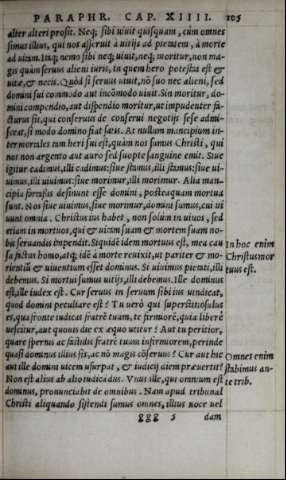 PARAPHR. CAP. XIIII. 105
alter alteri prosit. Neq; sibi uiuit quisquam, cùm omnes
simus illius, qui nos asseruit à uitijs ad pietatem, à morte
ad uitam. Itaq; nemo sibi neq; uiuit, neq; moritur, non ma-
gis quàm seruus alieni iuris, in quem hero potestas est &
uitæ, & necis. Quòd si seruus uiuit, nō suo nec alieni, sed
domini sui commodo aut incōmodo uiuit. Sin moritur, do-
mini compendio, aut dispendio moritur, ut impudenter fa-
cturus sit, qui conseruus de conserui negotijs sese admi-
sceat, si modo domino fiat satis. At nullum mancipium in-
ter mortales tam heri sui est, quàm nos sumus Christi, qui
nos non argento aut auro sed suopte sanguine emit. Siue
igitur cadimus, illi cadimus: siue stamus, illi stamus: siue ui-
uimus, illi uiuimus: siue morimur, illi morimur. Alia man-
cipia fortassis desinunt esse domini, posteaquam mortua
sunt. Nos siue uiuimus, siue morimur, domini sumus, cui ui
uunt omnia. Christus ius habet, non solùm in uiuos, sed
etiam in mortuos, qui & uitam suam & mortem suam no-
bis seruandis impendit. Siquidē idem mortuus est, mea cau
sa factus homo, atq; idē à morte reuixit, ut pariter & mo-
rientiū & uiuentium esset dominus. Si uiuimus pietati, illi
debemus. Si mortui sumus uitijs, illi debemus. Ille dominus
est, ille iudex est. Cur seruus in seruum sibi ius uindicat,
quod domini peculiare est? Tu uerò qui superstitiosulus
es, qua fronte iudicas fratrē tuum, te firmiorē, quia liberè
uescitur, aut quouis die ex æquo utitur? Aut tu peritior,
quare spernis ac fastidis fratrē tuum infirmiorem, perinde
quasi dominus illius sis, ac nō magis cōseruus? Cur aut hic
aut ille domini uicem usurpat, & iudicij diem præuertit?
Non est alius ab alio iudicadus. Vnus ille, qui omnium est
dominus, pronunciabit de omnibus. Nam apud tribunal
Christi aliquando sistendi sumus omnes, illius uoce uel
ggg 5 dam
In hoc enim
Christus mor
tuus est.
Omnes enim
stabimus an-
te trib.